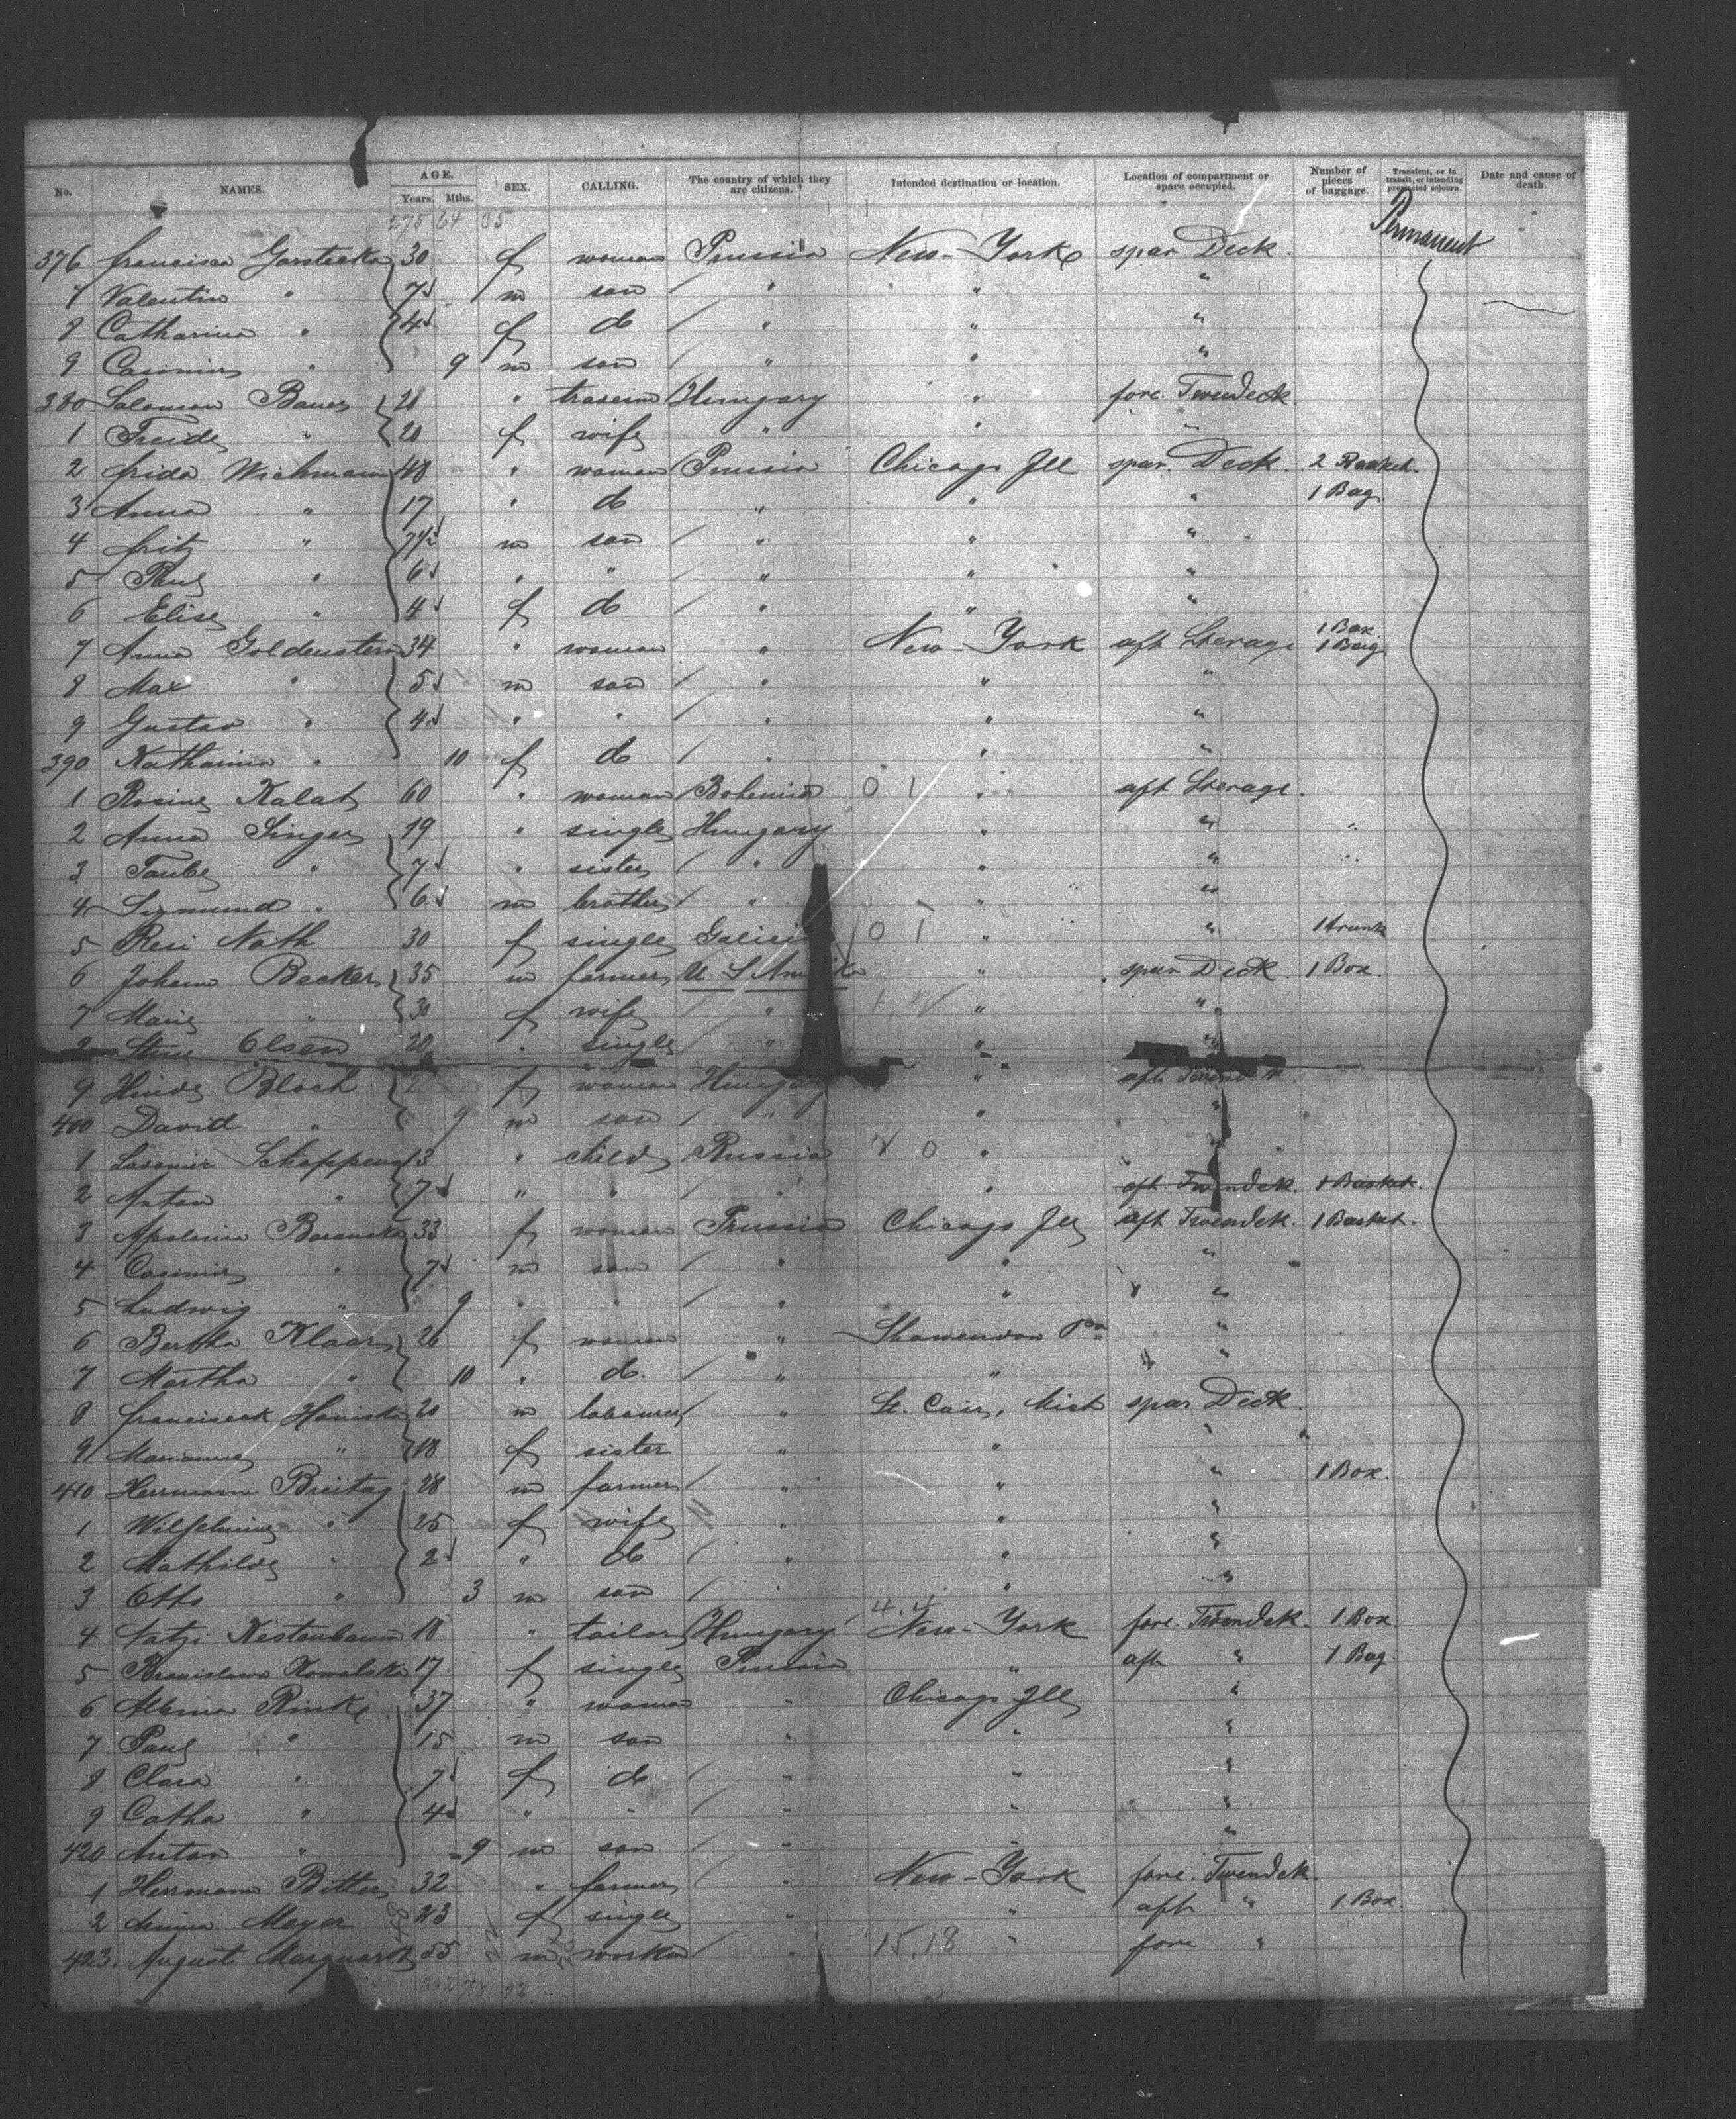 No. NAMES. AGE. Years. Mths. SEX. CALLING. The country of which they are citizens. Intended destination or location. Location of compartment or space occupied. Number of pieces of baggage. Transient, or in transit, or intending protracted sojourn. Date and cause of death.
275 64 35
Permanent
376 francisca 30 f woman Prussia New-York spar Deck.
7 Valentin " 7 m son " " "
8 Catharina " 4 f do " " "
9 Casimir " 9 m son " " "
380 Salomon Bauer 28 " Hungary " fore. Twendeck.
1 " 20 f wife " " "
2 frida Wichmann 48 " woman Prussia Chicago Ill spar. Deck. 2
3 Anna " 17 " do " " " 1 Bag.
4 fritz " 7 m son " " "
5 Paul " 6 " " " " "
6 Elise " 4 f do " " "
7 Anna Goldenstern 34 " woman " New-York aft Sterage 1 Box 1 Bag
8 Max " 5 m son " " "
9 Gustav " 4 " " " " "
390 Katharina " 10 f do " " "
1 Rosine Kalat 60 " woman Bohemia 0 1 " aft Sterage.
2 Anna Singer 19 " single Hungary " "
3 Taube " 7 " sister " " "
4 Sigmund " 6 m brother " " "
5 Resi Nath 30 f single 0 1 " " 1 trunk
6 Johann Becker 35 m farmer U S " spar Deck. 1 Box.
7 Marie " 30 f wife " " "
Olsen 20 " single " " "
9 Hinde Bloch f woman Hungary " aft
400 David " 9 m son " " "
1 " child Russia " "
2 Anton " 7 " " " " aft. Twendek. 1 Basket.
3 Apolonia Baranska 33 f woman Prussia Chicago Ill aft Twendek. 1 Basket.
4 Casimir " 7 m son " " "
5 Ludwig " 9 " " " " "
6 Bertha Klaar 26 f woman " Pa "
7 Martha " 10 " do. " " "
8 franciscek 20 m labourer " St. Cair, Mich spar Deck.
9 Marianne " 18 f sister " " "
410 Herrmann Breitag 28 m farmer " " " 1 Box.
1 Wilhelmine " 25 f wife " " "
2 Mathilde " 2 " do " " "
3 Otto " 3 m son " " "
4.4
4 Kestenbaum 18 " tailor Hungary New-York fore. Twendek. 1 Box
5 Bronislawa Kowalska 17 f single Prussia " aft " 1 Bag
6 Albina Rinke 37 " woman " Chicago Ill "
7 Paul " 15 m son " " "
8 Clara " 7 f do " " "
9 Catha " 4 " " " " "
420 Anton " 9 m son " " "
1 Herrmann Bitter 32 " farmer " New-York fore. Twendek.
2 Meyer 23 f single " " aft " 1 Box
423. August Marquardt 55 m worker " 15.18 " fore "